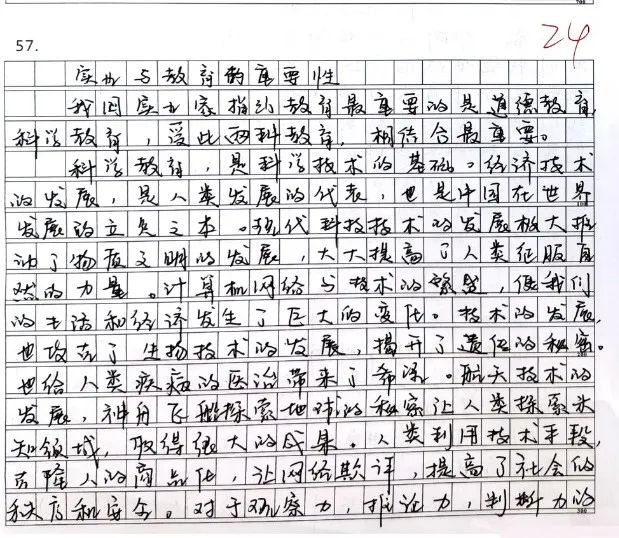 57.
24
实业与教育的重要性
我国实业家指出教育最重要的是道德教育,
科学教育,爱此两科教育,相结合最重要。
科学教育,是科学技术的基础。经济技术
的发展,是人类发展的代表,也是中国在世界
发展的立免之本。现代科技技术的发展极大推
动了物质文明的发展,大大提高了人类征服自
然的力量。计算机网络与技术的繁盛,使我们
的生活和经济发生了巨大的变化。技术的发展,
也攻克了生物技术的发展,揭开了遗传的秘密。
也给人类疾病的医治带来了希望。航天技术的
发展,神舟飞船探索地球的秘密让人类探索未
知领域,取得很大的成果。人类利用技术手段,
克隆人的商品化,让网络欺诈,提高了社会的
秩序和安全。对于观察力,推论力,判断力的